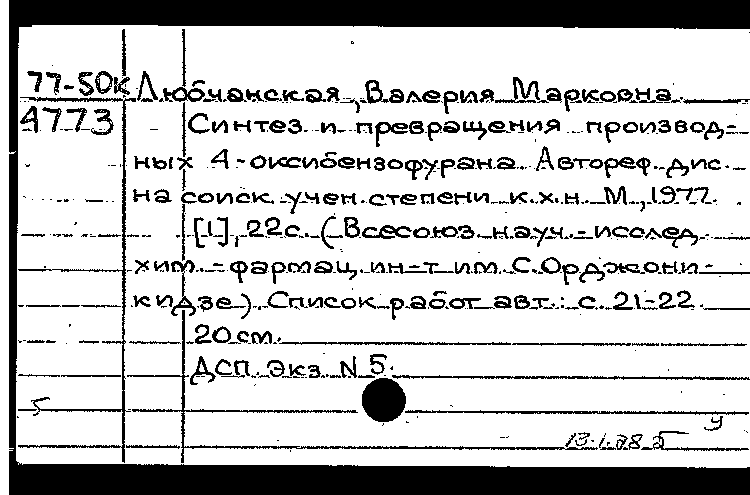 77-50к Любчанская, Валерия Марковна.
4773 Синтез и превращения производ-
ных 4-оксибензофурана. Автореф. дис.
на соиск. учен. степени к.х.н. М., 1977.
[1], 22с. (Всесоюз. науч.-исслед.
хим.-фармац. ин-т им. С. Орджони-
кидзе). Список работ авт.: с. 21-22.
20 см.
ДСП. Экз. N 5.
5
у
13.1.78